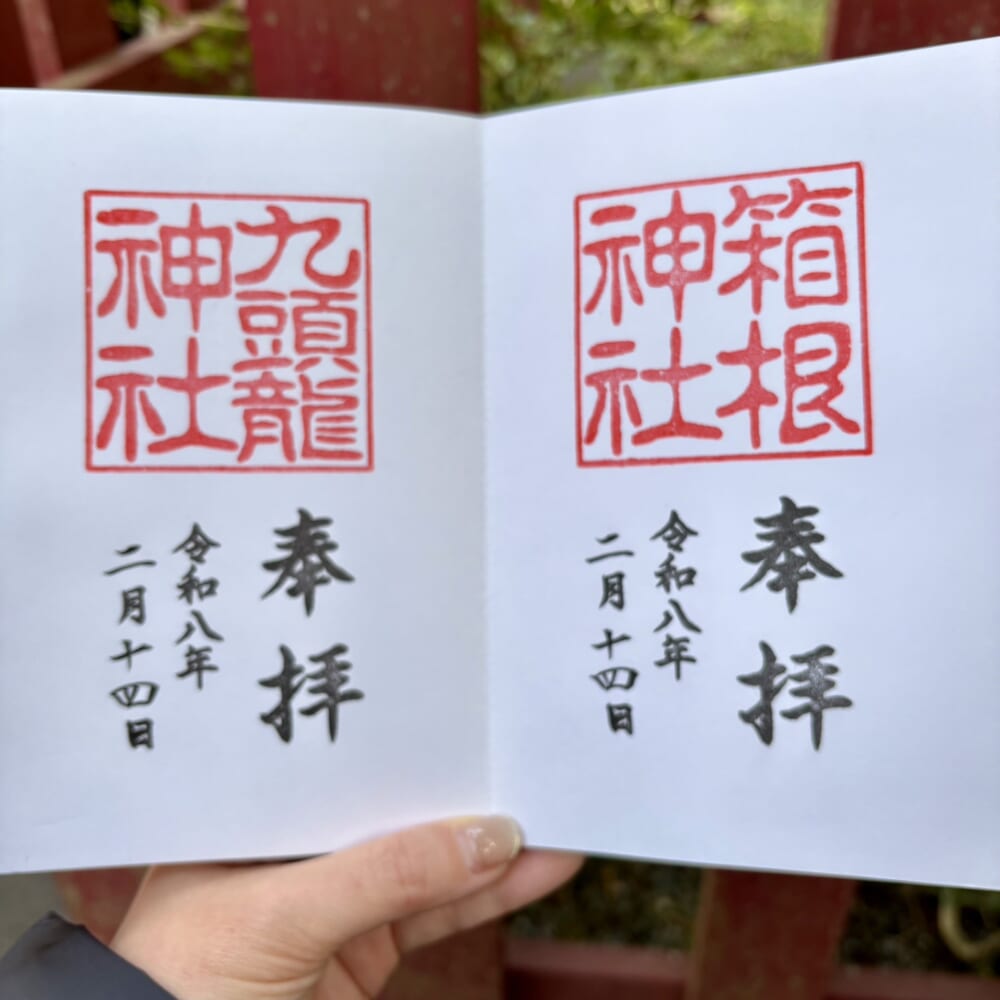 箱根
神社
奉拝
令和八年
二月十四日
九頭龍
神社
奉拝
令和八年
二月十四日